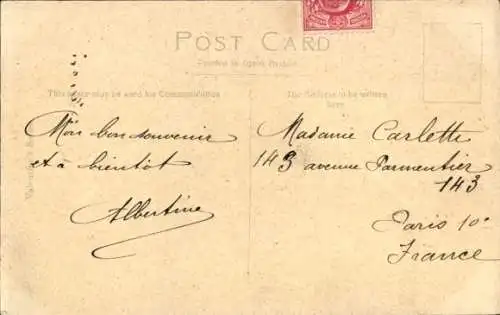 POST CARD
This space may be used for Communication
The Address to be written
here
Mon bon souvenir
et à bientôt
Albertine
Madame Carlette
143 avenue Parmentier
143
Paris 10e
France